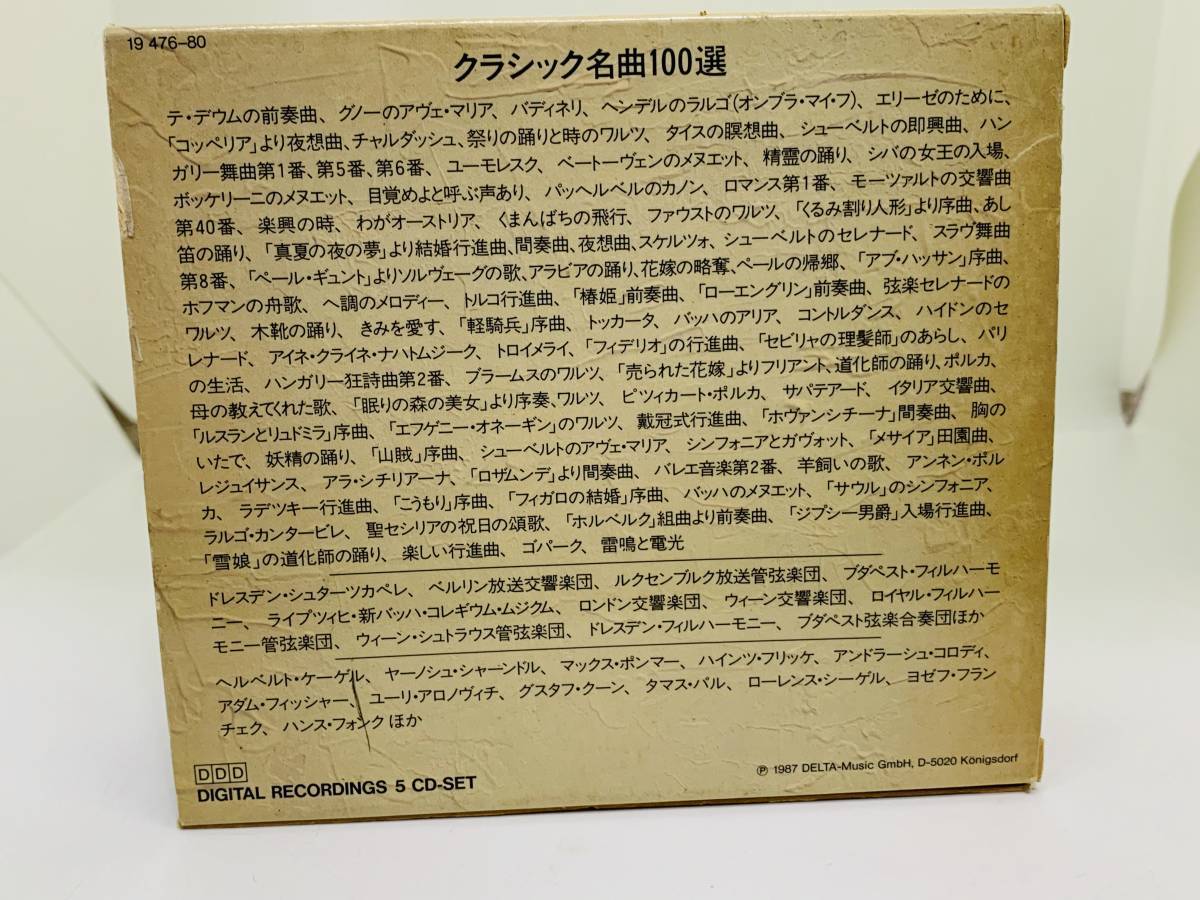 19 476-80
クラシック名曲100選
テ・デウムの前奏曲、グノーのアヴェ・マリア、バディネリ、ヘンデルのラルゴ(オンブラ・マイ・フ)、エリーゼのために、
「コッペリア」より夜想曲、チャルダッシュ、祭りの踊りと時のワルツ、タイスの瞑想曲、シューベルトの即興曲、ハン
ガリー舞曲第1番、第5番、第6番、ユーモレスク、ベートーヴェンのメヌエット、精霊の踊り、シバの女王の入場、
ボッケリーニのメヌエット、目覚めよと呼ぶ声あり、パッヘルベルのカノン、ロマンス第1番、モーツァルトの交響曲
第40番、楽興の時、わがオーストリア、くまんばちの飛行、ファウストのワルツ、「くるみ割り人形」より序曲、あし
笛の踊り、「真夏の夜の夢」より結婚行進曲、間奏曲、夜想曲、スケルツォ、シューベルトのセレナード、スラヴ舞曲
第8番、「ペール・ギュント」よりソルヴェーグの歌、アラビアの踊り、花嫁の略奪、ペールの帰郷、「アブ・ハッサン」序曲、
ホフマンの舟歌、ヘ調のメロディー、トルコ行進曲、「椿姫」前奏曲、「ローエングリン」前奏曲、弦楽セレナードの
ワルツ、木靴の踊り、きみを愛す、「軽騎兵」序曲、トッカータ、バッハのアリア、コントルダンス、ハイドンのセ
レナード、アイネ・クライネ・ナハトムジーク、トロイメライ、「フィデリオ」の行進曲、「セビリャの理髪師」のあらし、パリ
の生活、ハンガリー狂詩曲第2番、ブラームスのワルツ、「売られた花嫁」よりフリアント、道化師の踊り、ポルカ、
母の教えてくれた歌、「眠りの森の美女」より序奏、ワルツ、ピツィカート・ポルカ、サパテアード、イタリア交響曲、
「ルスランとリュドミラ」序曲、「エフゲニー・オネーギン」のワルツ、戴冠式行進曲、「ホヴァンシチーナ」間奏曲、胸の
いたで、妖精の踊り、「山賊」序曲、シューベルトのアヴェ・マリア、シンフォニアとガヴォット、「メサイア」田園曲、
レジュイサンス、アラ・シチリアーナ、「ロザムンデ」より間奏曲、バレエ音楽第2番、羊飼いの歌、アンネン・ポル
カ、ラデツキー行進曲、「こうもり」序曲、「フィガロの結婚」序曲、バッハのメヌエット、「サウル」のシンフォニア、
ラルゴ・カンタービレ、聖セシリアの祝日の頌歌、「ホルベルク」組曲より前奏曲、「ジプシー男爵」入場行進曲、
「雪娘」の道化師の踊り、楽しい行進曲、ゴパーク、雷鳴と電光
ドレスデン・シュターツカペレ、ベルリン放送交響楽団、ルクセンブルク放送管弦楽団、ブダペスト・フィルハーモ
ニー、ライプツィヒ・新バッハ・コレギウム・ムジクム、ロンドン交響楽団、ウィーン交響楽団、ロイヤル・フィルハー
モニー管弦楽団、ウィーン・シュトラウス管弦楽団、ドレスデン・フィルハーモニー、ブダペスト弦楽合奏団ほか
ヘルベルト・ケーゲル、ヤーノシュ・シャーンドル、マックス・ポンマー、ハインツ・フリッケ、アンドラーシュ・コロディ、
アダム・フィッシャー、ユーリ・アロノヴィチ、グスタフ・クーン、タマス・パル、ローレンス・シーゲル、ヨゼフ・フラン
チェク、ハンス・フォンク ほか
DDD
DIGITAL RECORDINGS 5 CD-SET
℗ 1987 DELTA-Music GmbH, D-5020 Königsdorf